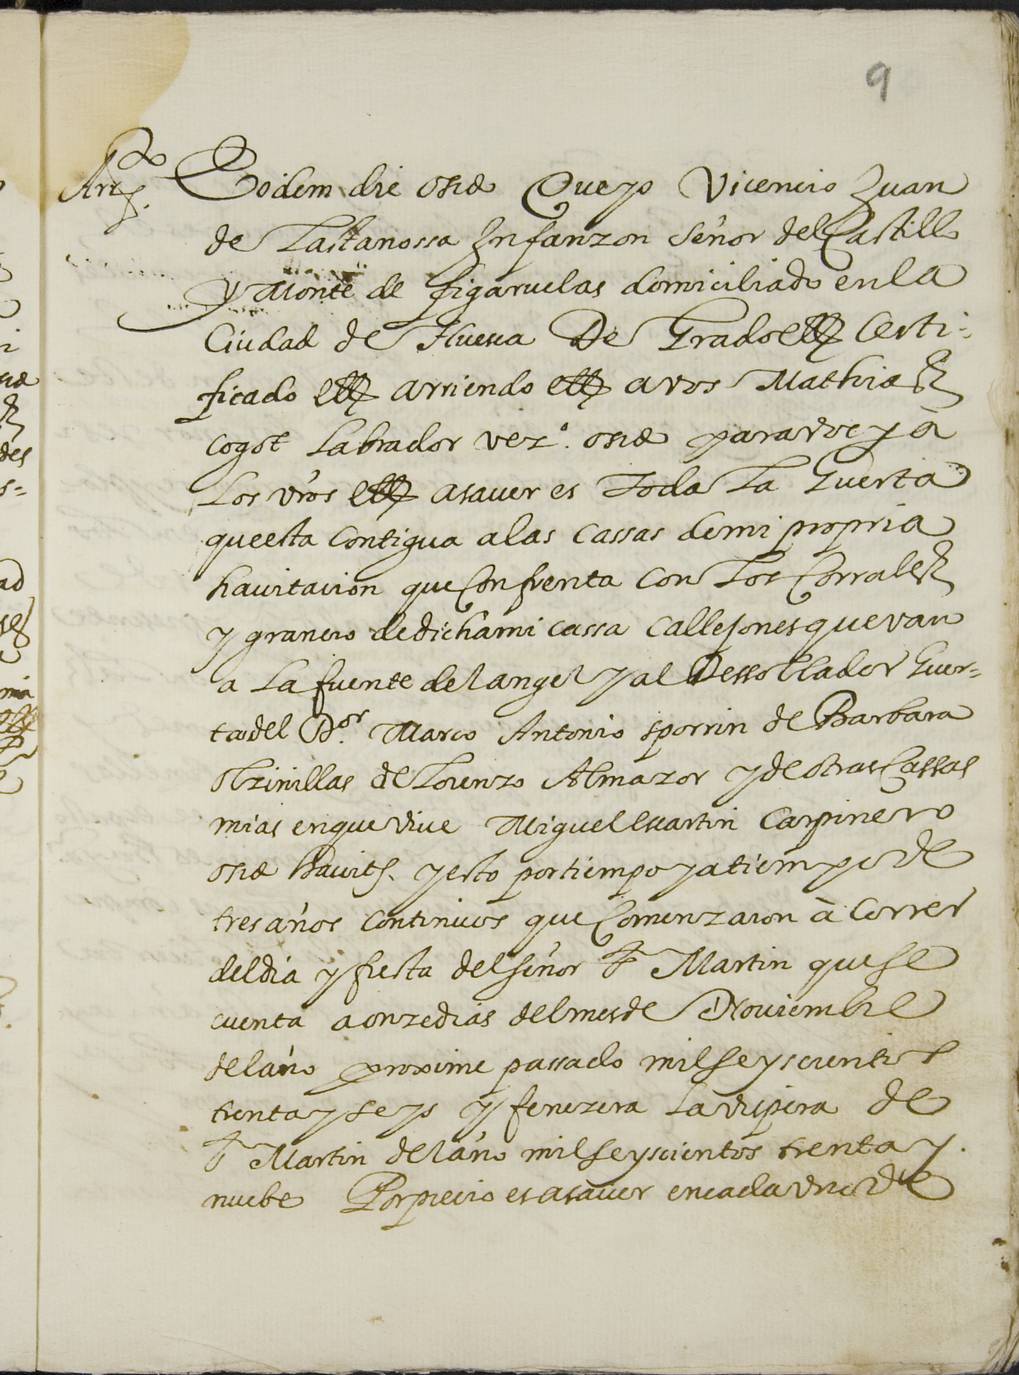 9
Eodem die Oscæ Que yo Vicencio Juan
de Lastanossa Infanzon Señor del Castillo
y Monte de figaruelas domiciliado en la
Ciudad de Huesca De Grado etz Certi-
ficado etz arriendo etz a vos Mathias
cogot Labrador vezº. oscæ para vos y a
Los vros etz asaver es Toda La Guerta
que esta contigua a las cassas de mi propria
havitacion que Confrenta con Los Corrales
y granero de dicha mi cassa callejones que van
a La fuente del angel y al Dessollador Guer-
ta del Dor. Marco Antonio sporrin de Barbara
Ozinillas de Lorenzo Almazor y de otras Cassas
mias en que vive Miguel Martin Carpinero
oscæ havits. y esto por tiempo y a tiempo de
tres años continuos que Comenzaron à Correr
del dia y fiesta del señor St Martin que se
cuenta a onze dias del mes de Noviembre
del año proxime passado mil seyscientos
trenta y seys y fenezera La vispera de
St Martin del año mil seyscientos trenta y
nuebe Por precio es asaver en cada uno de